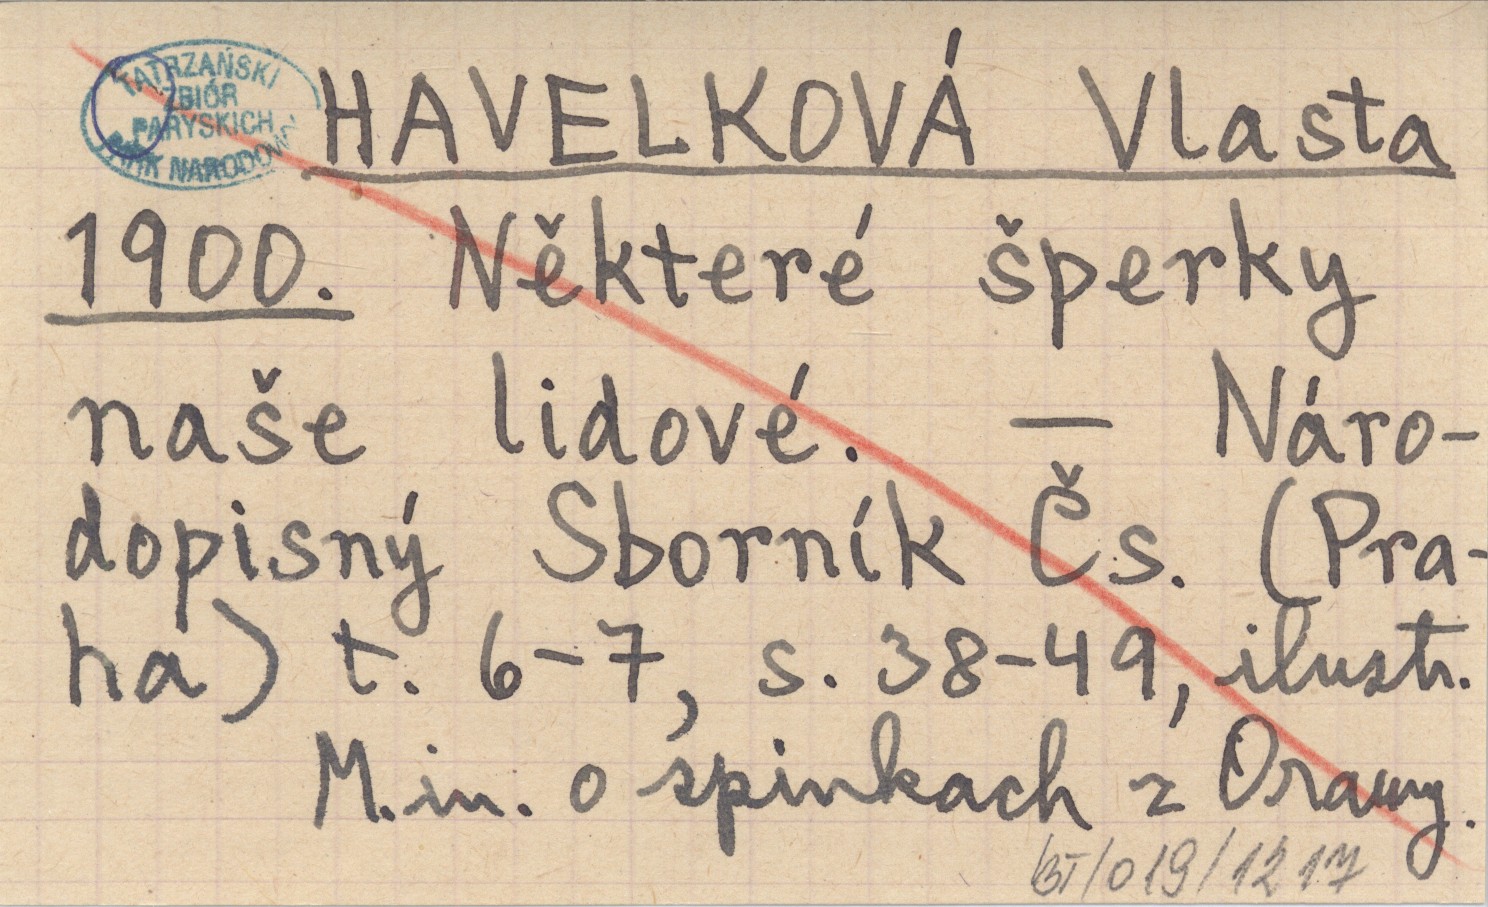 TATRZAŃSKI
ZBIÓR
PARYSKICH
PARK NARODOWY
HAVELKOVÁ Vlasta
1900. Některé šperky
naše lidové. — Náro-
dopisný Sborník Čs. (Pra-
ha) t. 6-7, s. 38-49, ilustr.
M.in. o spinkach z Orawy.
BT/019/1217